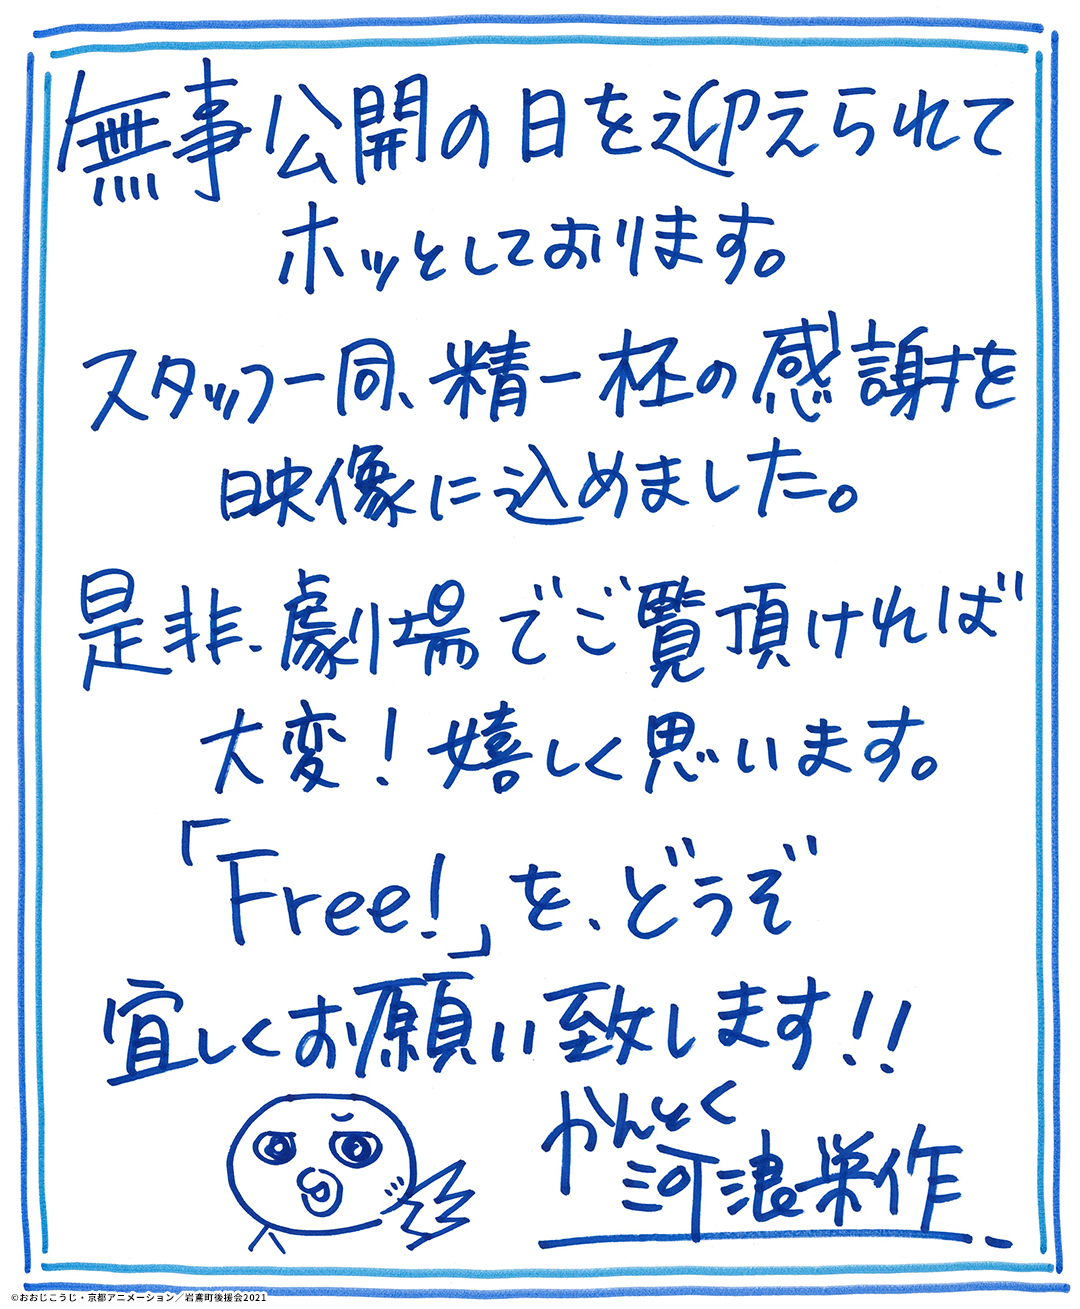 無事公開の日を迎えられて
ホッとしております。
スタッフ一同、精一杯の感謝を
映像に込めました。
是非、劇場でご覧頂ければ
大変！嬉しく思います。
「Free!」を、どうぞ
宜しくお願い致します！！
かんとく
河浪栄作
©おおじこうじ・京都アニメーション／岩鳶町後援会2021